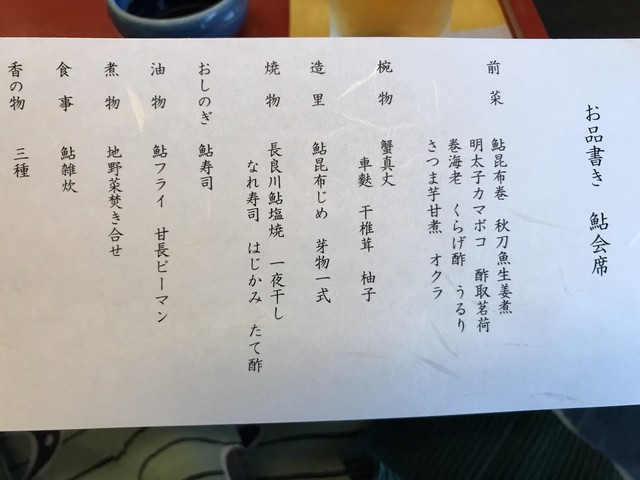 お品書き 鮎会席
前菜 鮎昆布巻 秋刀魚生姜煮
明太子カマボコ 酢取茗荷
巻海老 くらげ酢 うるり
さつま芋甘煮 オクラ
椀物 蟹真丈
車麩 干椎茸 柚子
造里 鮎昆布じめ 芽物一式
焼物 長良川鮎塩焼 一夜干し
なれ寿司 はじかみ たて酢
おしのぎ 鮎寿司
油物 鮎フライ 甘長ピーマン
煮物 地野菜焚き合せ
食事 鮎雑炊
香の物 三種